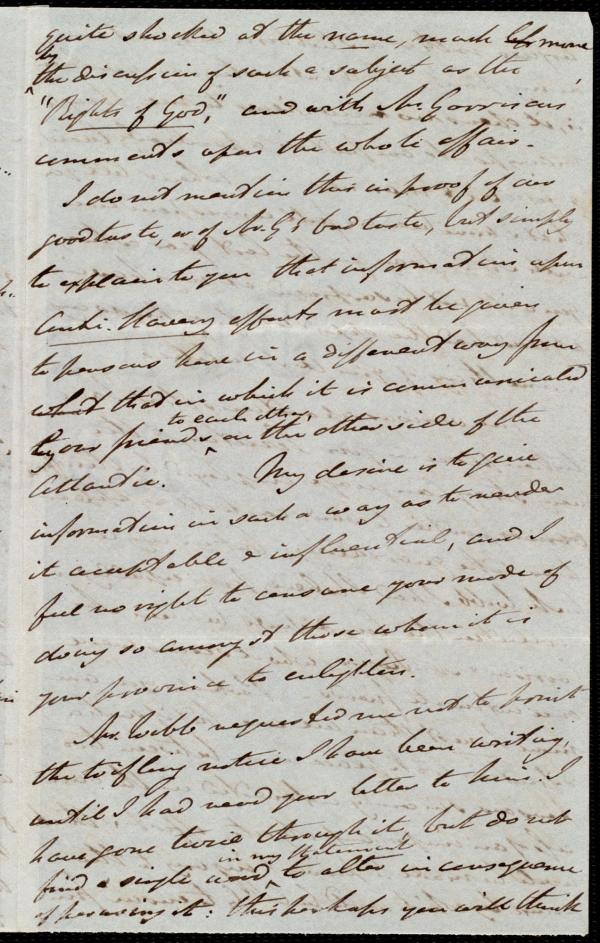 quite shocked at the name, much more,
by
the discussion of such a subject as the
"Rights of God," and with Mr Garrisons
comments upon the whole affair.
I do not mention this in proof of our
good taste, or of Mr G's bad taste, but simply
to explain to you that information upon
Anti-Slavery efforts must be given
to persons here in a different way from
what that in which it is communicated
to each other,
by our friends on the other side of the
Atlantic. My desire is to give
information in such a way as to render
it acceptable & influential, and I
feel no right to censure your mode of
doing so amongst those whom it is
your province to enlighten.
Mr. Webb requested me not to print
the trifling notice I have been writing
until I had read your letter to him. I
have gone twice through it, but do not
in my statement
find a single word to alter in consequence
of perusing it: this perhaps you will think